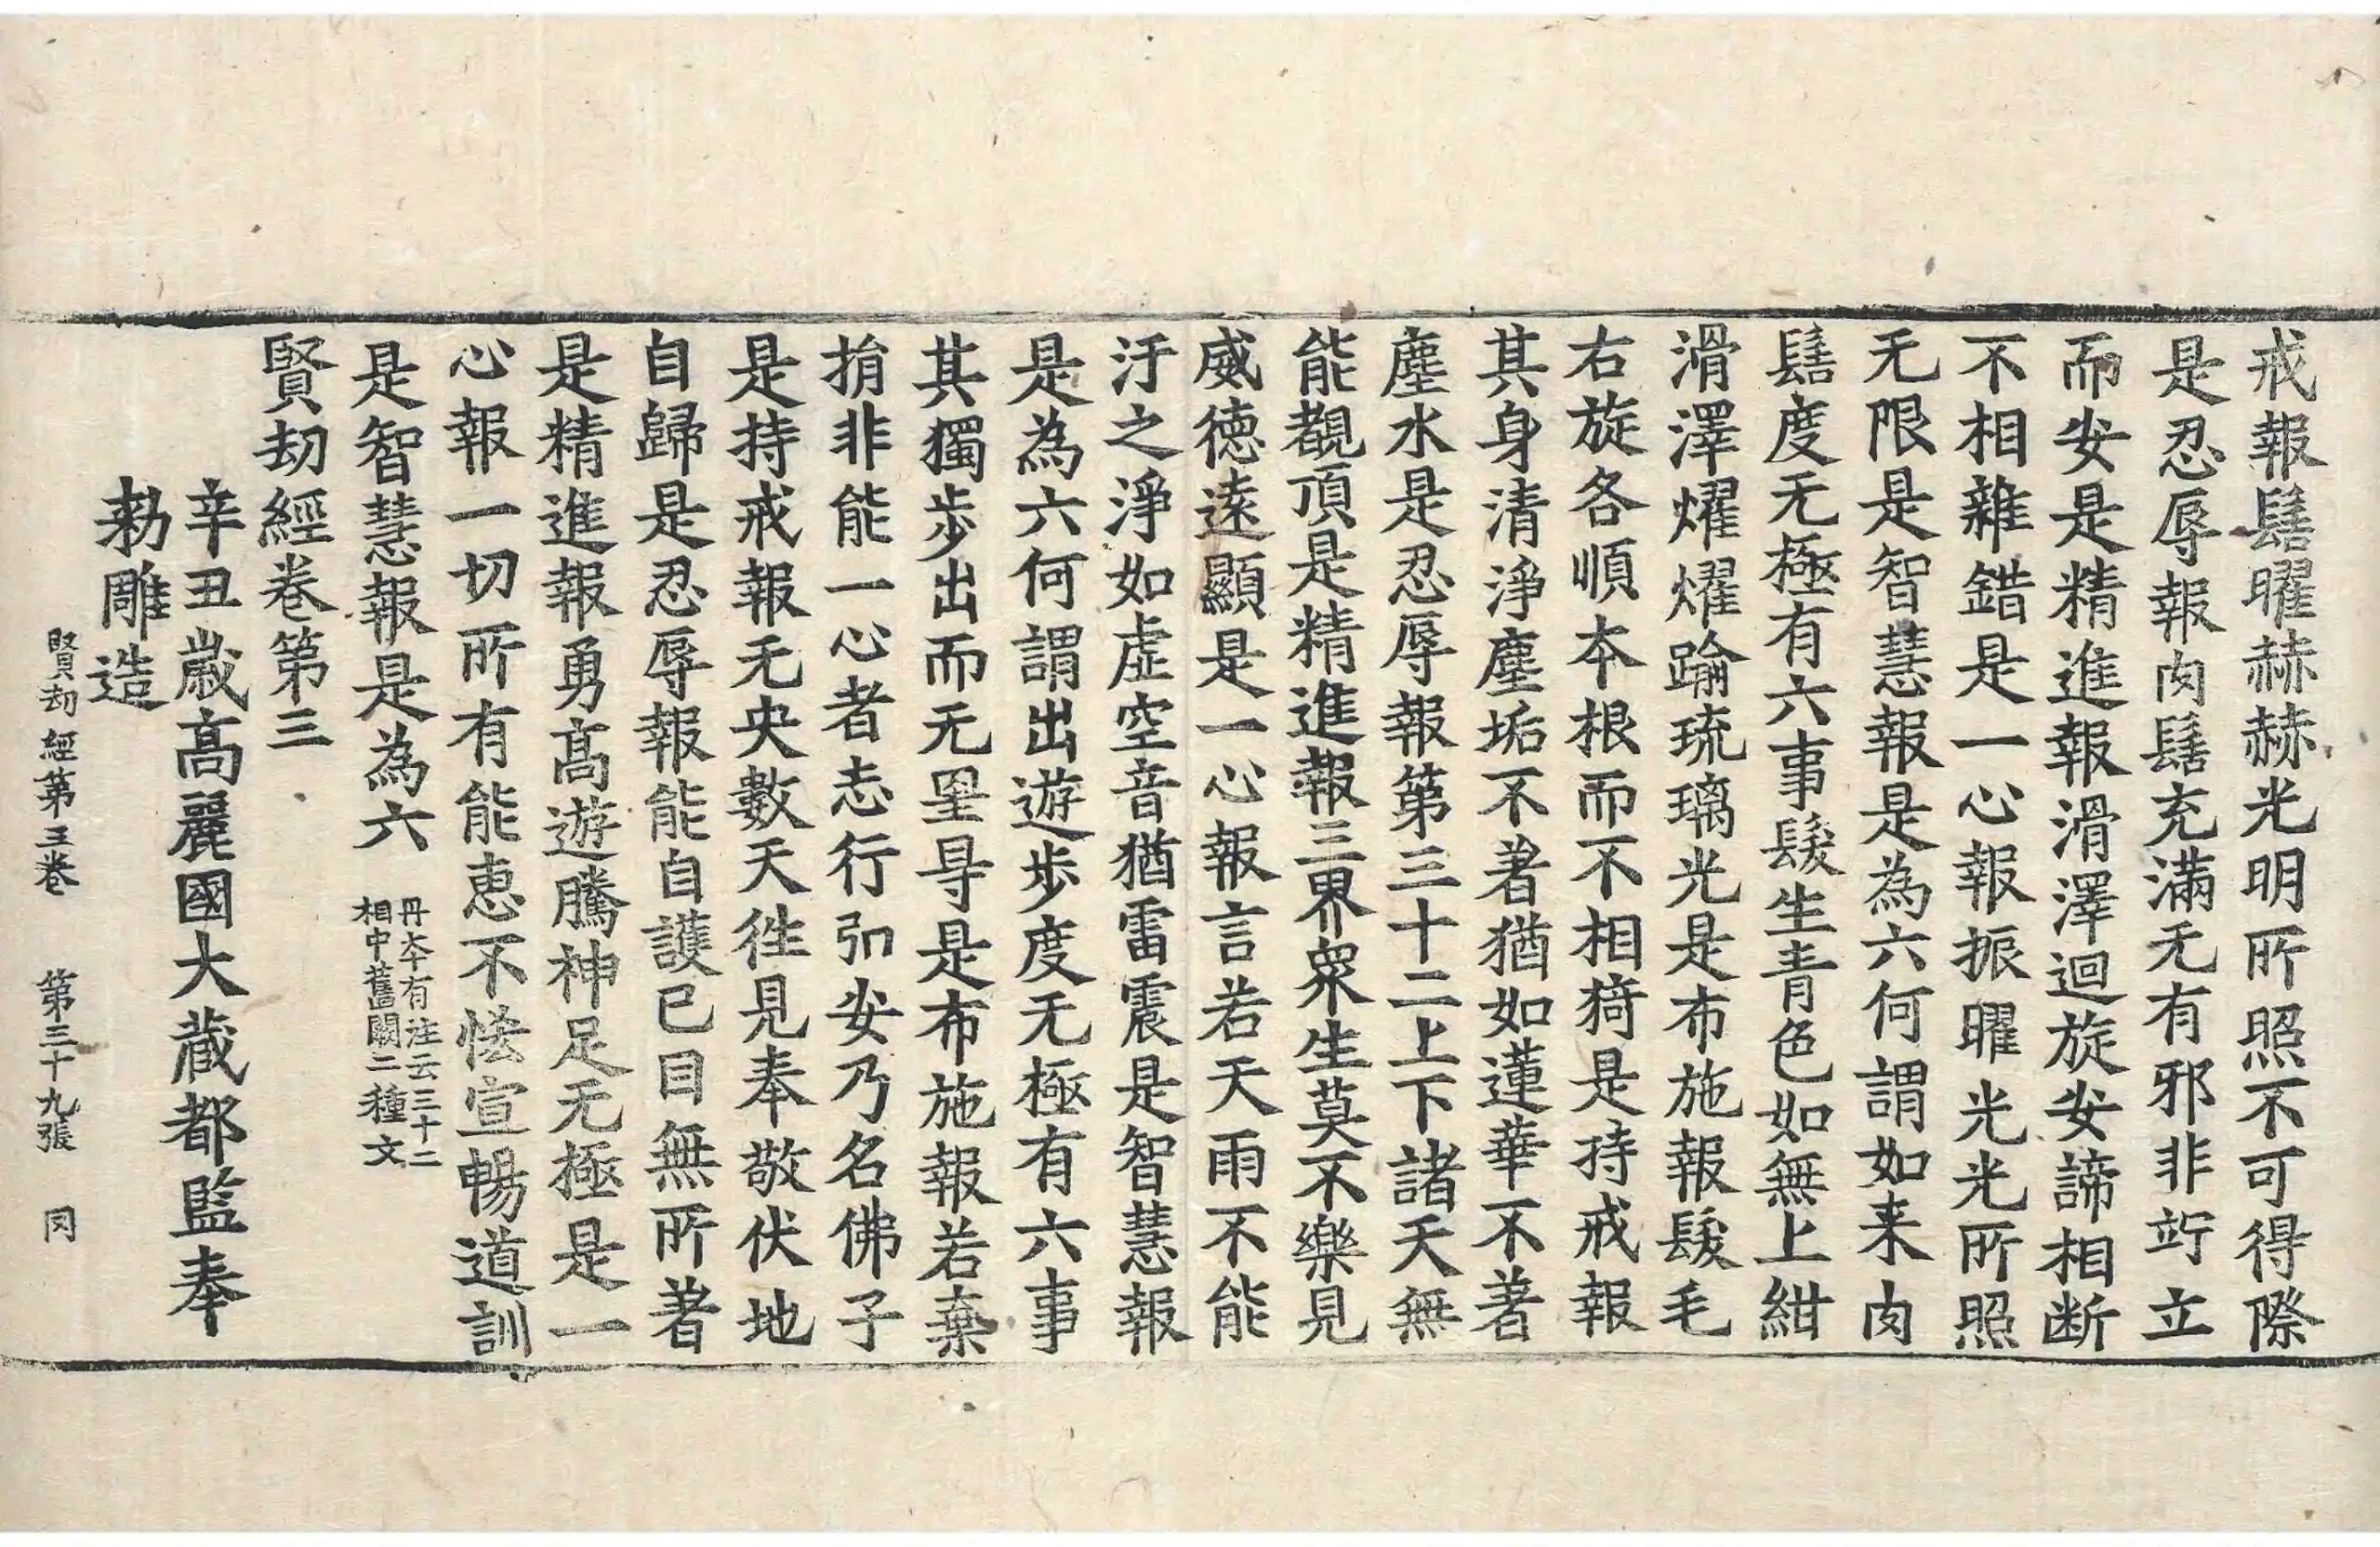 戒報髻曜赫赫光明所照不可得際
是忍辱報肉髻充滿无有邪非竚立
而安是精進報滑澤迴旋安諦相断
不相雜錯是一心報振曜光光所照
无限是智慧報是為六何謂如来肉
髻度无極有六事髮生青色如無上紺
滑澤燿燿踰琉璃光是布施報髮毛
右旋各順本根而不相猗是持戒報
其身清淨塵垢不著猶如蓮華不著
塵水是忍辱報第三十二上下諸天無
能覩頂是精進報三界衆生莫不樂見
威德遠顯是一心報言若天雨不能
汙之淨如虛空音猶雷震是智慧報
是為六何謂出遊步度无極有六事
其獨步出而无罣㝵是布施報若棄
捐非能一心者志行引安乃名佛子
是持戒報无央數天徃見奉敬伏地
自歸是忍辱報能自護己目無所著
是精進報勇髙遊騰神足无極是一
心報一切所有能恵不悋宣暢道訓
是智慧報是為六 丹本有注云三十二相中舊闕二種文
賢劫經卷第三
辛丑歲髙麗國大藏都監奉
勑雕造
賢劫經第三卷 第三十九張 同